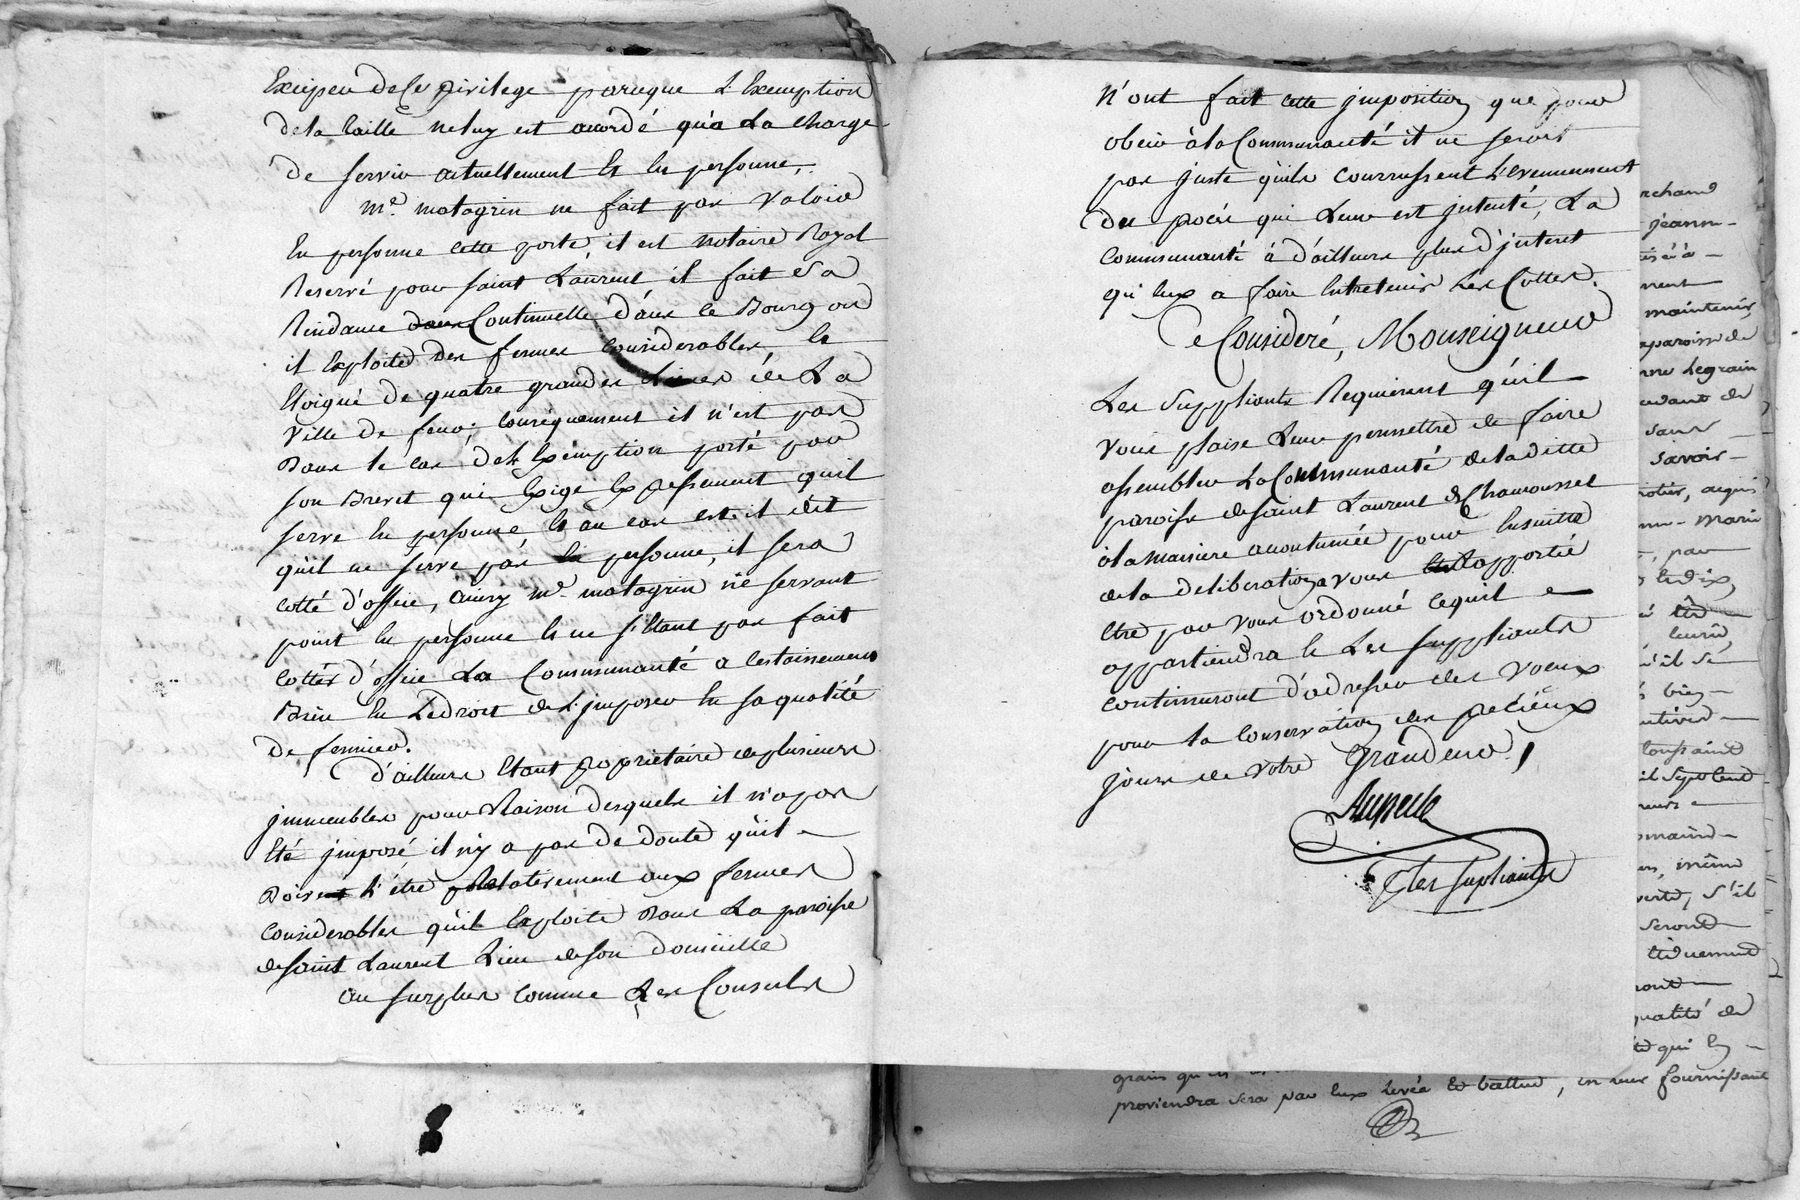 Exciper de Ce privilege parceque L'Exemption
de la taille ne luy est accordé qu'a La Charge
de servir actuellement En Personne,
me. matagrin ne fait pas Valoir
En personne cette poste, il est Notaire Royal
Reservé pour saint Laurent il fait Sa
Residance Continuelle dans le Bourg ou
il Exploite des fermes considerables, Et
Eloigné de quatre grandes Lieues de La
Ville de feur; consequemment il n'est pas
Dans le cas de L'Exemption porté par
son Brevet qui Exige Expressement qu'il
serve En personne, Et au cas est-il dit
qu'il ne serve pas En personne, il sera
cotté d'office, ainsy me. matagrin ne servant
point En personne Et ne s'Etant pas fait
Cotter d'office La Communauté a Certainement
Bien Eu Le droit de L'jmposer En sa qualité
De fermier.
D'ailleurs Etant proprietaire de plusieurs
jmmeubles pour Raison desquels il n'a pas
Eté jmposé il n'y a pas de doute qu'il
Doive L'être relativement aux fermes
Considerables qu'il Exploite Dans La paroisse
de saint Laurent Lieu de son domicille
au surplus comme Les Consuls
N'ont fait cette jmposition que pour
obeir à la Communauté il ne seroit
pas juste qu'ils courrussent L'evennement
du procés qui Leur est jntenté, La
Communauté à d'ailleurs plus d'jnteret
qu'Eux a faire Entretenir Les Cottes.
Ce Consideré, Monseigneur
Les Suppliants Requierent qu'il
Vous plaise Leur permettre de faire
assembler La Communauté de la ditte
paroisse de saint Laurent de Chamousset
à la maniere accoutumée pour Ensuitte
de la deliberation a vous Rapportée
Etre par vous ordonné cequil
appartiendra Et Les suppliants
continueront d'adresser des Voeux
pour la Conservation des precieux
jours de Votre Grandeur,
Ples supliants
rchand
jeann-
maintenir
paroisse de
Legrain
sans
savoir-
acquis
marie
par
qu'il se
bien
toussaint
même
s'il
seront
qualité de
qui En
proviendra sera par Eux levée Et battue, en leur fournissant